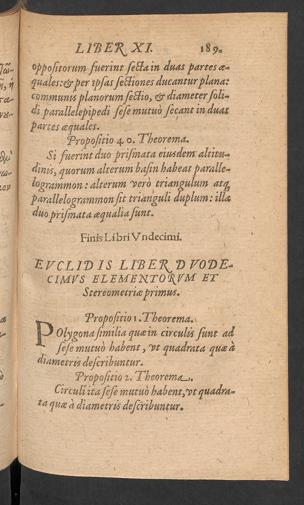 LIBER XI. 189.
oppositorum fuerint secta in duas partes æ-
quales: & per ipsas sectiones ducantur plana:
communis planorum sectio, & diameter soli-
di parallelepipedi sese mutuò secant in duas
partes æquales.
Propositio 40. Theorema.
Si fuerint duo prismata eiusdem altitu-
dinis, quorum alterum basin habeat paralle-
logrammon: alterum verò triangulum atq;
parallelogrammon sit trianguli duplum: illa
duo prismata æqualia sunt.
Finis Libri Vndecimi.
EVCLIDIS LIBER DVODE-
CIMVS ELEMENTORVM ET
Stereometriæ primus.
Propositio 1. Theorema.
POlygona similia quæ in circulis sunt ad
sese mutuò habent, vt quadrata quæ à
diametris describuntur.
Propositio 2. Theorema.
Circuli ita sese mutuò habent, vt quadra-
ta quæ à diametris describuntur.